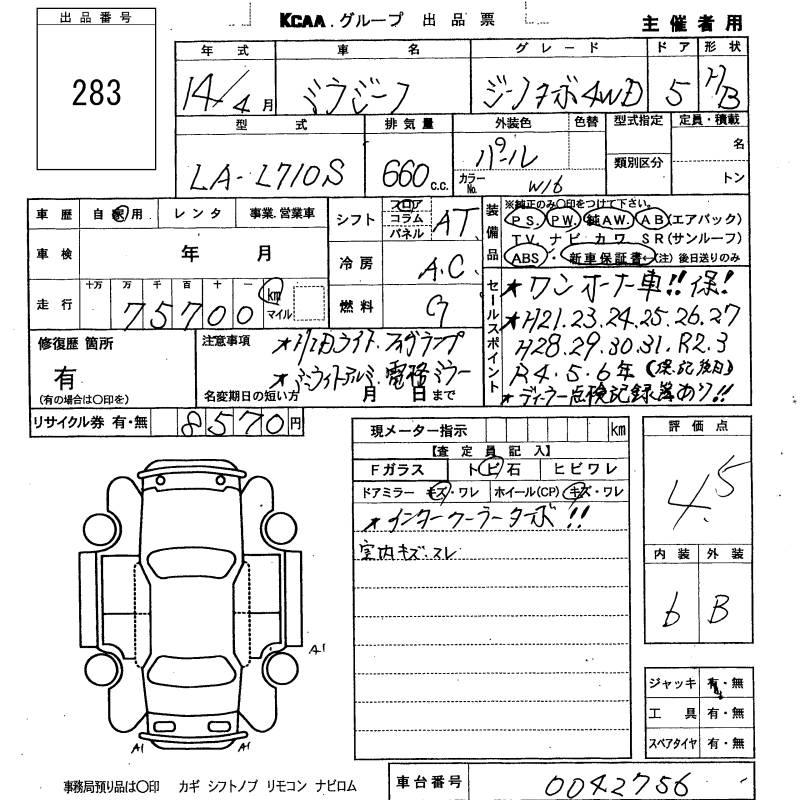 出品番号
283
KCAA.グループ 出品票
主催者用
年式 車名 グレード ドア 形状
14/4月 ミラジーノ ジーノターボ4WD 5 H/B
型式 排気量 外装色 色替 型式指定 定員・積載
LA-L710S 660c.c. パール
類別区分
名
カラーNo. W16
トン
車歴 自家用 レンタ 事業.営業車
シフト フロア コラム パネル AT
車検 年 月
冷房 A.C
走行 十万 万 千 百 十 一
75700 km マイル
燃料 G
装備品
※純正のみ○印をつけて下さい。
PS. PW. 純AW. AB(エアバック)
TV ナビ カワ SR(サンルーフ)
ABS 新車保証書←(注)後日送りのみ
セールスポイント
★ワンオーナー車!!保!
★H21.23.24.25.26.27
H28.29.30.31.R2.3
R4.5.6年(保.記後日)
★ディーラー点検記録簿あり!!
修復歴 箇所
有
(有の場合は○印を)
注意事項
★HIDライト.フォグランプ
電格ミラー
名変期日の短い方 月 日まで
リサイクル券 有・無 8570円
現メーター指示 km
【査定員記入】
Fガラス トビ石 ヒビワレ
ドアミラー キズ・ワレ ホイール(CP) キズ・ワレ
★インタークーラーターボ!!
室内キズ.スレ
評価点
4.5
内装 外装
6 B
A1
A1
A1
ジャッキ 有・無
工具 有・無
スペアタイヤ 有・無
事務局預り品は○印 カギ シフトノブ リモコン ナビロム
車台番号 0042756